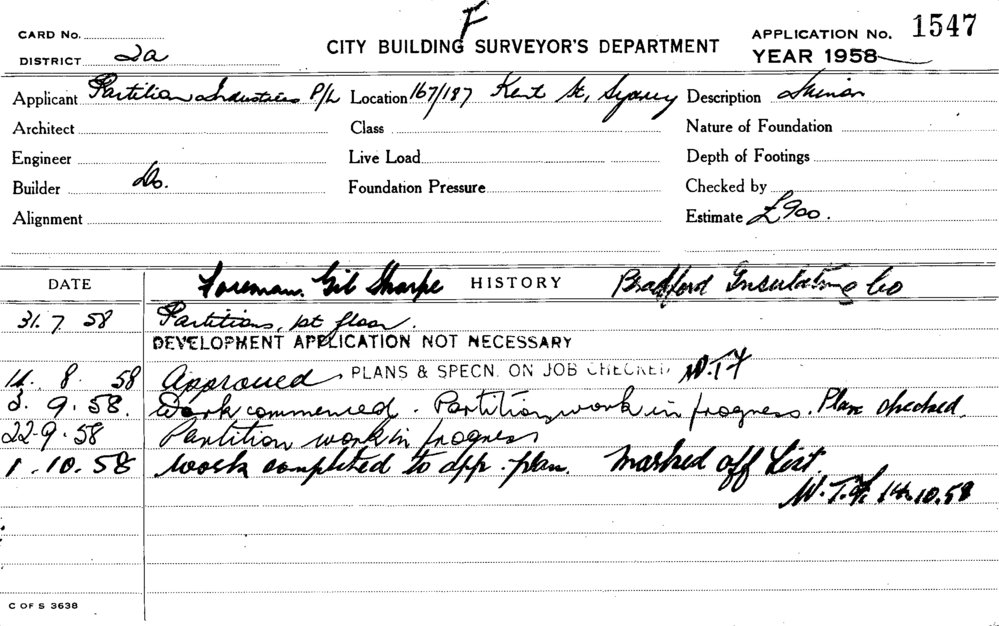 F
CARD No.
CITY BUILDING SURVEYOR'S DEPARTMENT
APPLICATION No. 1547
DISTRICT 2a
YEAR 1958
Applicant Partition Industries P/L Location 167/187 Kent St, Sydney Description Minor
Architect Class Nature of Foundation
Engineer Live Load Depth of Footings
Builder Do. Foundation Pressure Checked by
Alignment Estimate £900.
DATE Foreman. Gil Sharpe HISTORY Bradford Insulating Co
31. 7. 58 Partitions, 1st floor.
DEVELOPMENT APPLICATION NOT NECESSARY
14. 8. 58 Approved PLANS & SPECN. ON JOB CHECKED W.T.F
3. 9. 58. Work commenced. Partition work in progress. Plans checked.
22-9-58 Partition work in progress
1. 10. 58 work completed to app. plan. Marked off List.
W.T.F. 14.10.58
C OF S 3638